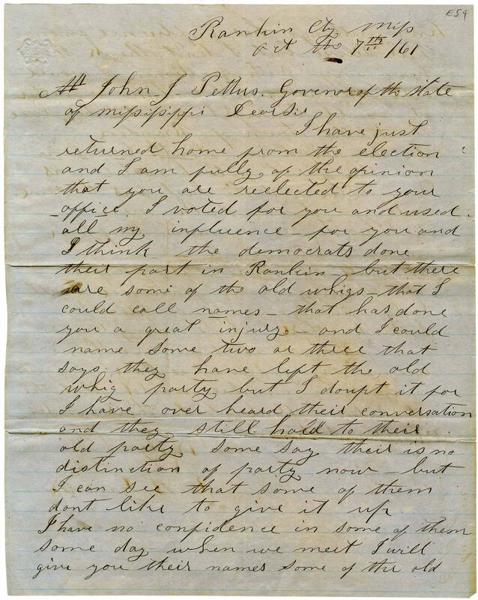 E59
Rankin Cty Miss
Oct the 7th /61
Mr John J Pettus, Govenor of the state
of mipisippi Dear Sir
I have just
returned home from the election
and I am fully of the opinion
that you are reelected to your
office. I voted for you and used
all my influence for you and
I think the democrats done
their part in Rankin but there
are some of the old whigs that I
could call names that has done
you a great injury and I could
name some two or three that
says they have left the old
whig party but I doubt it for
I have over heard their conversation
and they still hold to their
old party some say their is no
distinction of party now but
I can see that some of them
dont like to give it up
I have no confidence in some of them
some day when we meet I will
give you their names some of the old